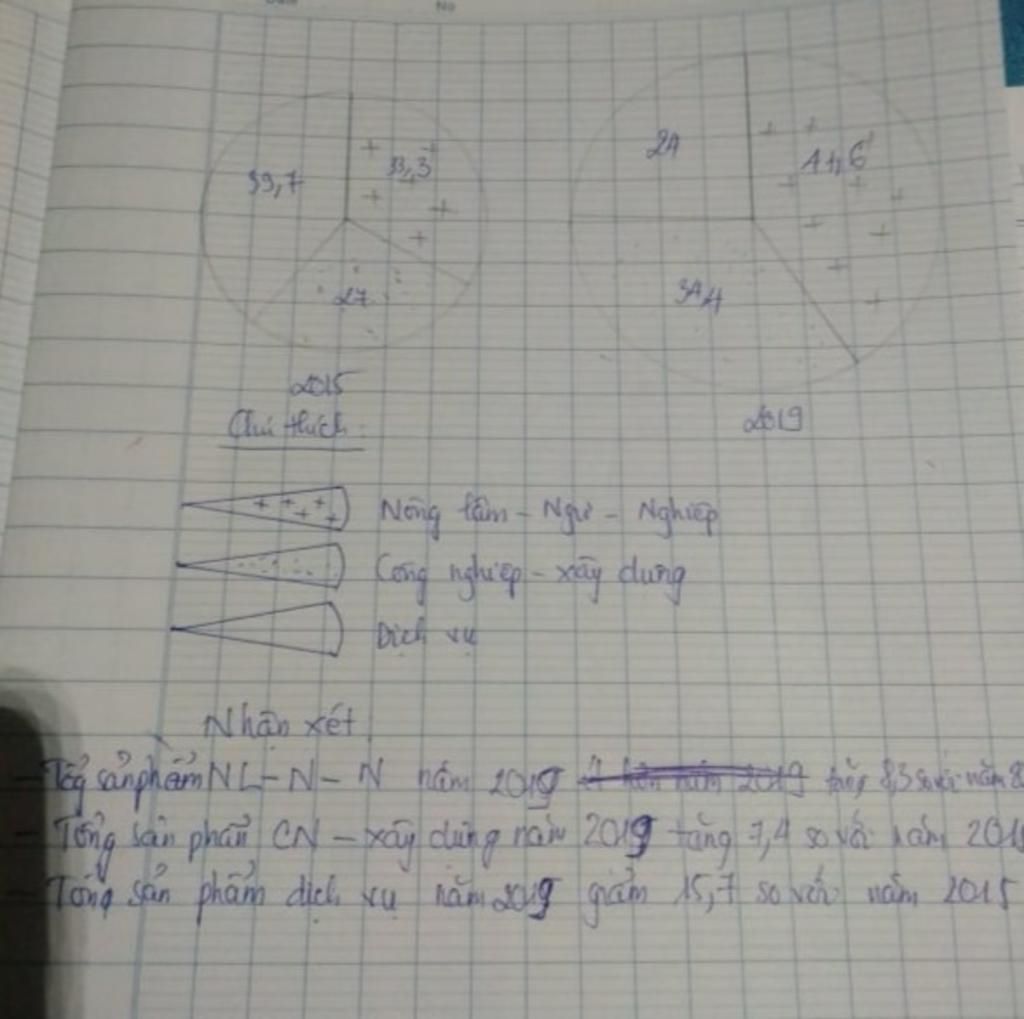 No
39,7
33,3
27
2015
24
41,6
34,4
2019
Chú thích:
Nông lâm - Ngư - Nghiệp
Công nghiệp - xây dựng
Dịch vụ
Nhận xét
- Tổg sản phẩm NL - N - N năm 2019 tăng 8,3 so với năm
- Tổng sản phẩn CN - xây dựng năm 2019 tăng 7,4 so với năm 201
- Tổng sản phẩm dịch vụ năm 2019 giảm 15,7 so với năm 2015